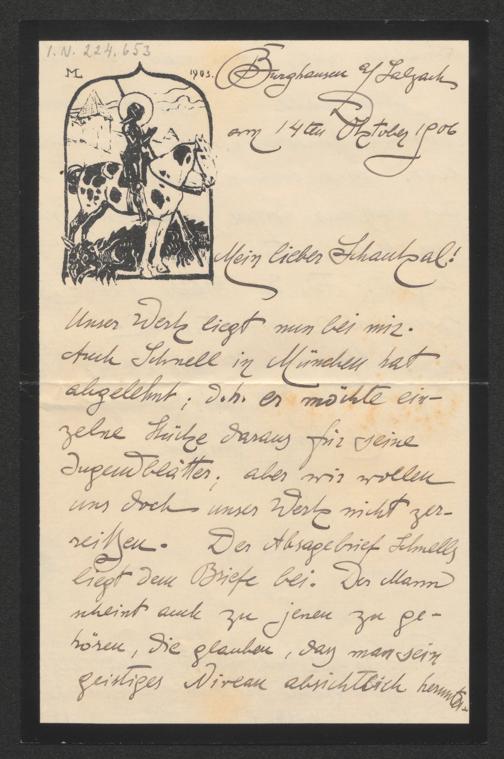 I.N. 224.653
ML 1903.
Burghausen a/Salzach
am 14ten Oktober 1906
Mein lieber Schaukal!
Unser Werk liegt nun bei mir.
Auch Schnell in München hat
abgelehnt; d.h. er möchte ein-
zelne Stücke daraus für seine
Jugendblätter; aber wir wollen
uns doch unser Werk nicht zer-
reißen. Der Absagebrief Schnells
liegt dem Briefe bei. Der Mann
scheint auch zu jenen zu ge-
hören, die glauben, dass man sein
geistiges Niveau absichtlich herunter-